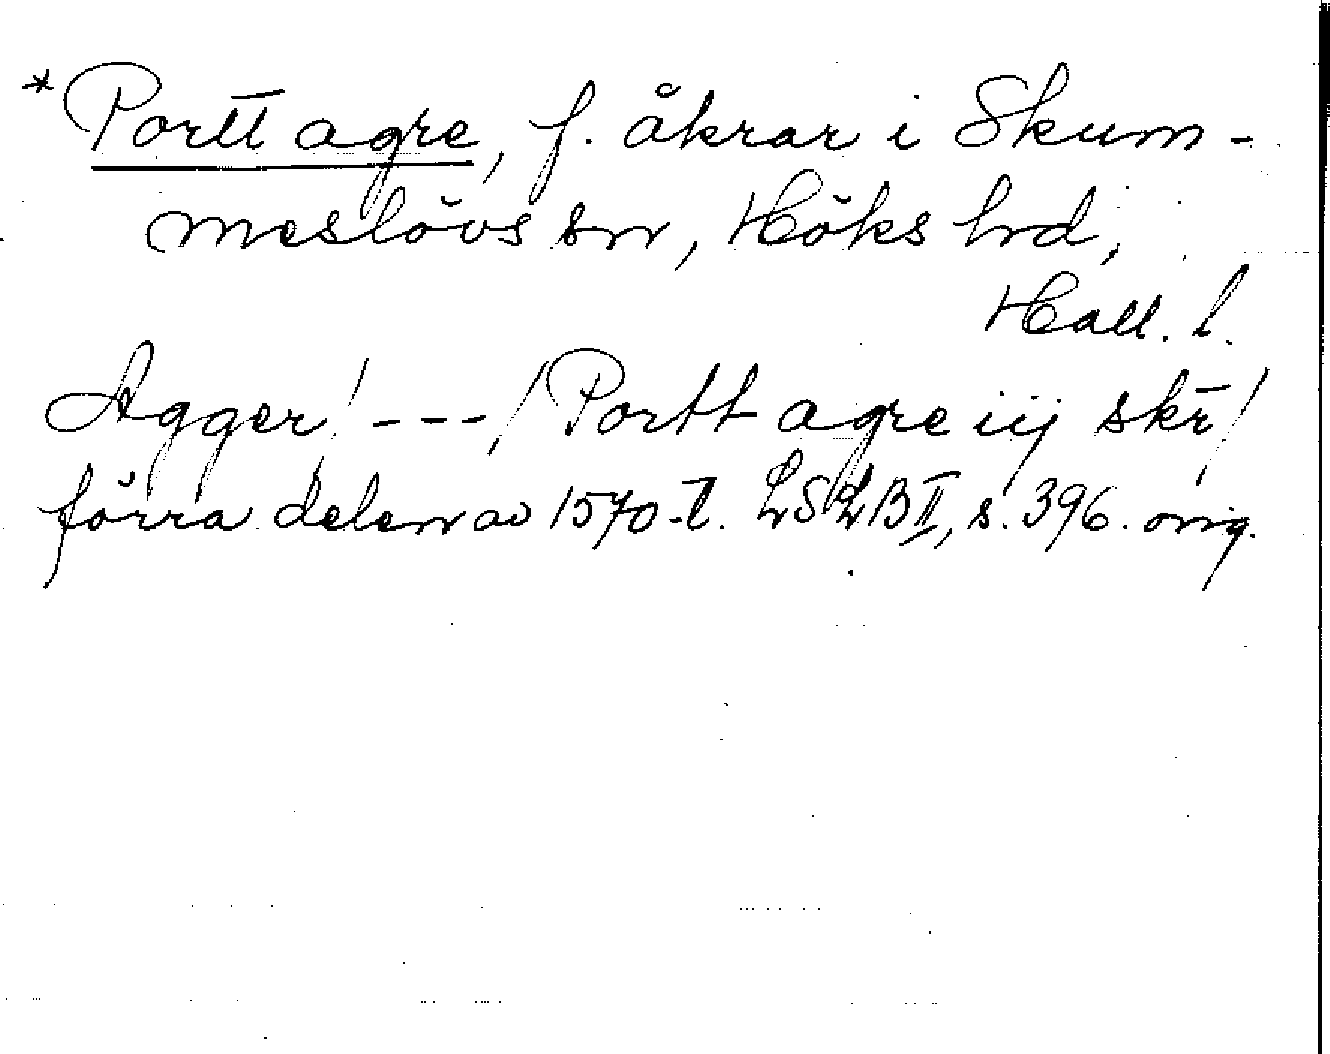 *Portt agre, f. åkrar i Skum-
meslövs sn, Höks hrd,
Hall. l.
Agger/---/Portt agre iij skr̄/
förra delen av 1570-t. LSLB II, s. 396. orig.